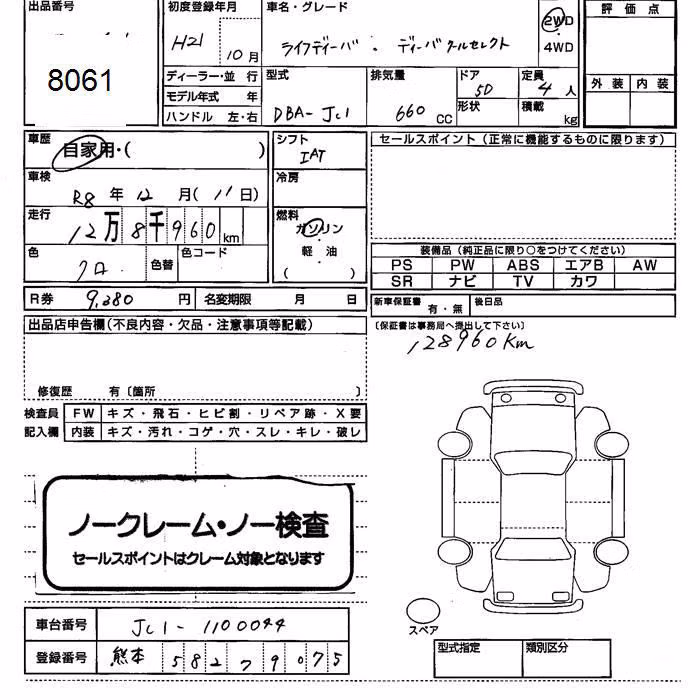 出品番号 初度登録年月 車名・グレード 評価点
8061 H21 10月 ライフディーバ・ディーバクールセレクト 2WD・4WD
ディーラー・並行 型式 排気量 ドア 定員 外装 内装
モデル年式 年 DBA-JC1 660CC 5D 4人
ハンドル 左・右 形状 積載 kg
車歴 自家用・( ) シフト セールスポイント(正常に機能するものに限ります)
IAT
車検 R8年12月(11日) 冷房
走行 12万8千960km 燃料 ガソリン・軽油( )
色 クロ 色替 色コード 装備品(純正品に限り○をつけてください)
PS PW ABS エアB AW
SR ナビ TV カワ
R券 9,280円 名変期限 月 日 新車保証書 有・無 後日品
出品店申告欄(不良内容・欠品・注意事項等記載) (保証書は事務局へ提出して下さい)
128960Km
修復歴 有〔箇所 〕
検査員 FW キズ・飛石・ヒビ割・リペア跡・X要
記入欄 内装 キズ・汚れ・コゲ・穴・スレ・キレ・破レ
ノークレーム・ノー検査
セールスポイントはクレーム対象となります
スペア
車台番号 JC1-1100044
登録番号 熊本 582 79075
型式指定 類別区分